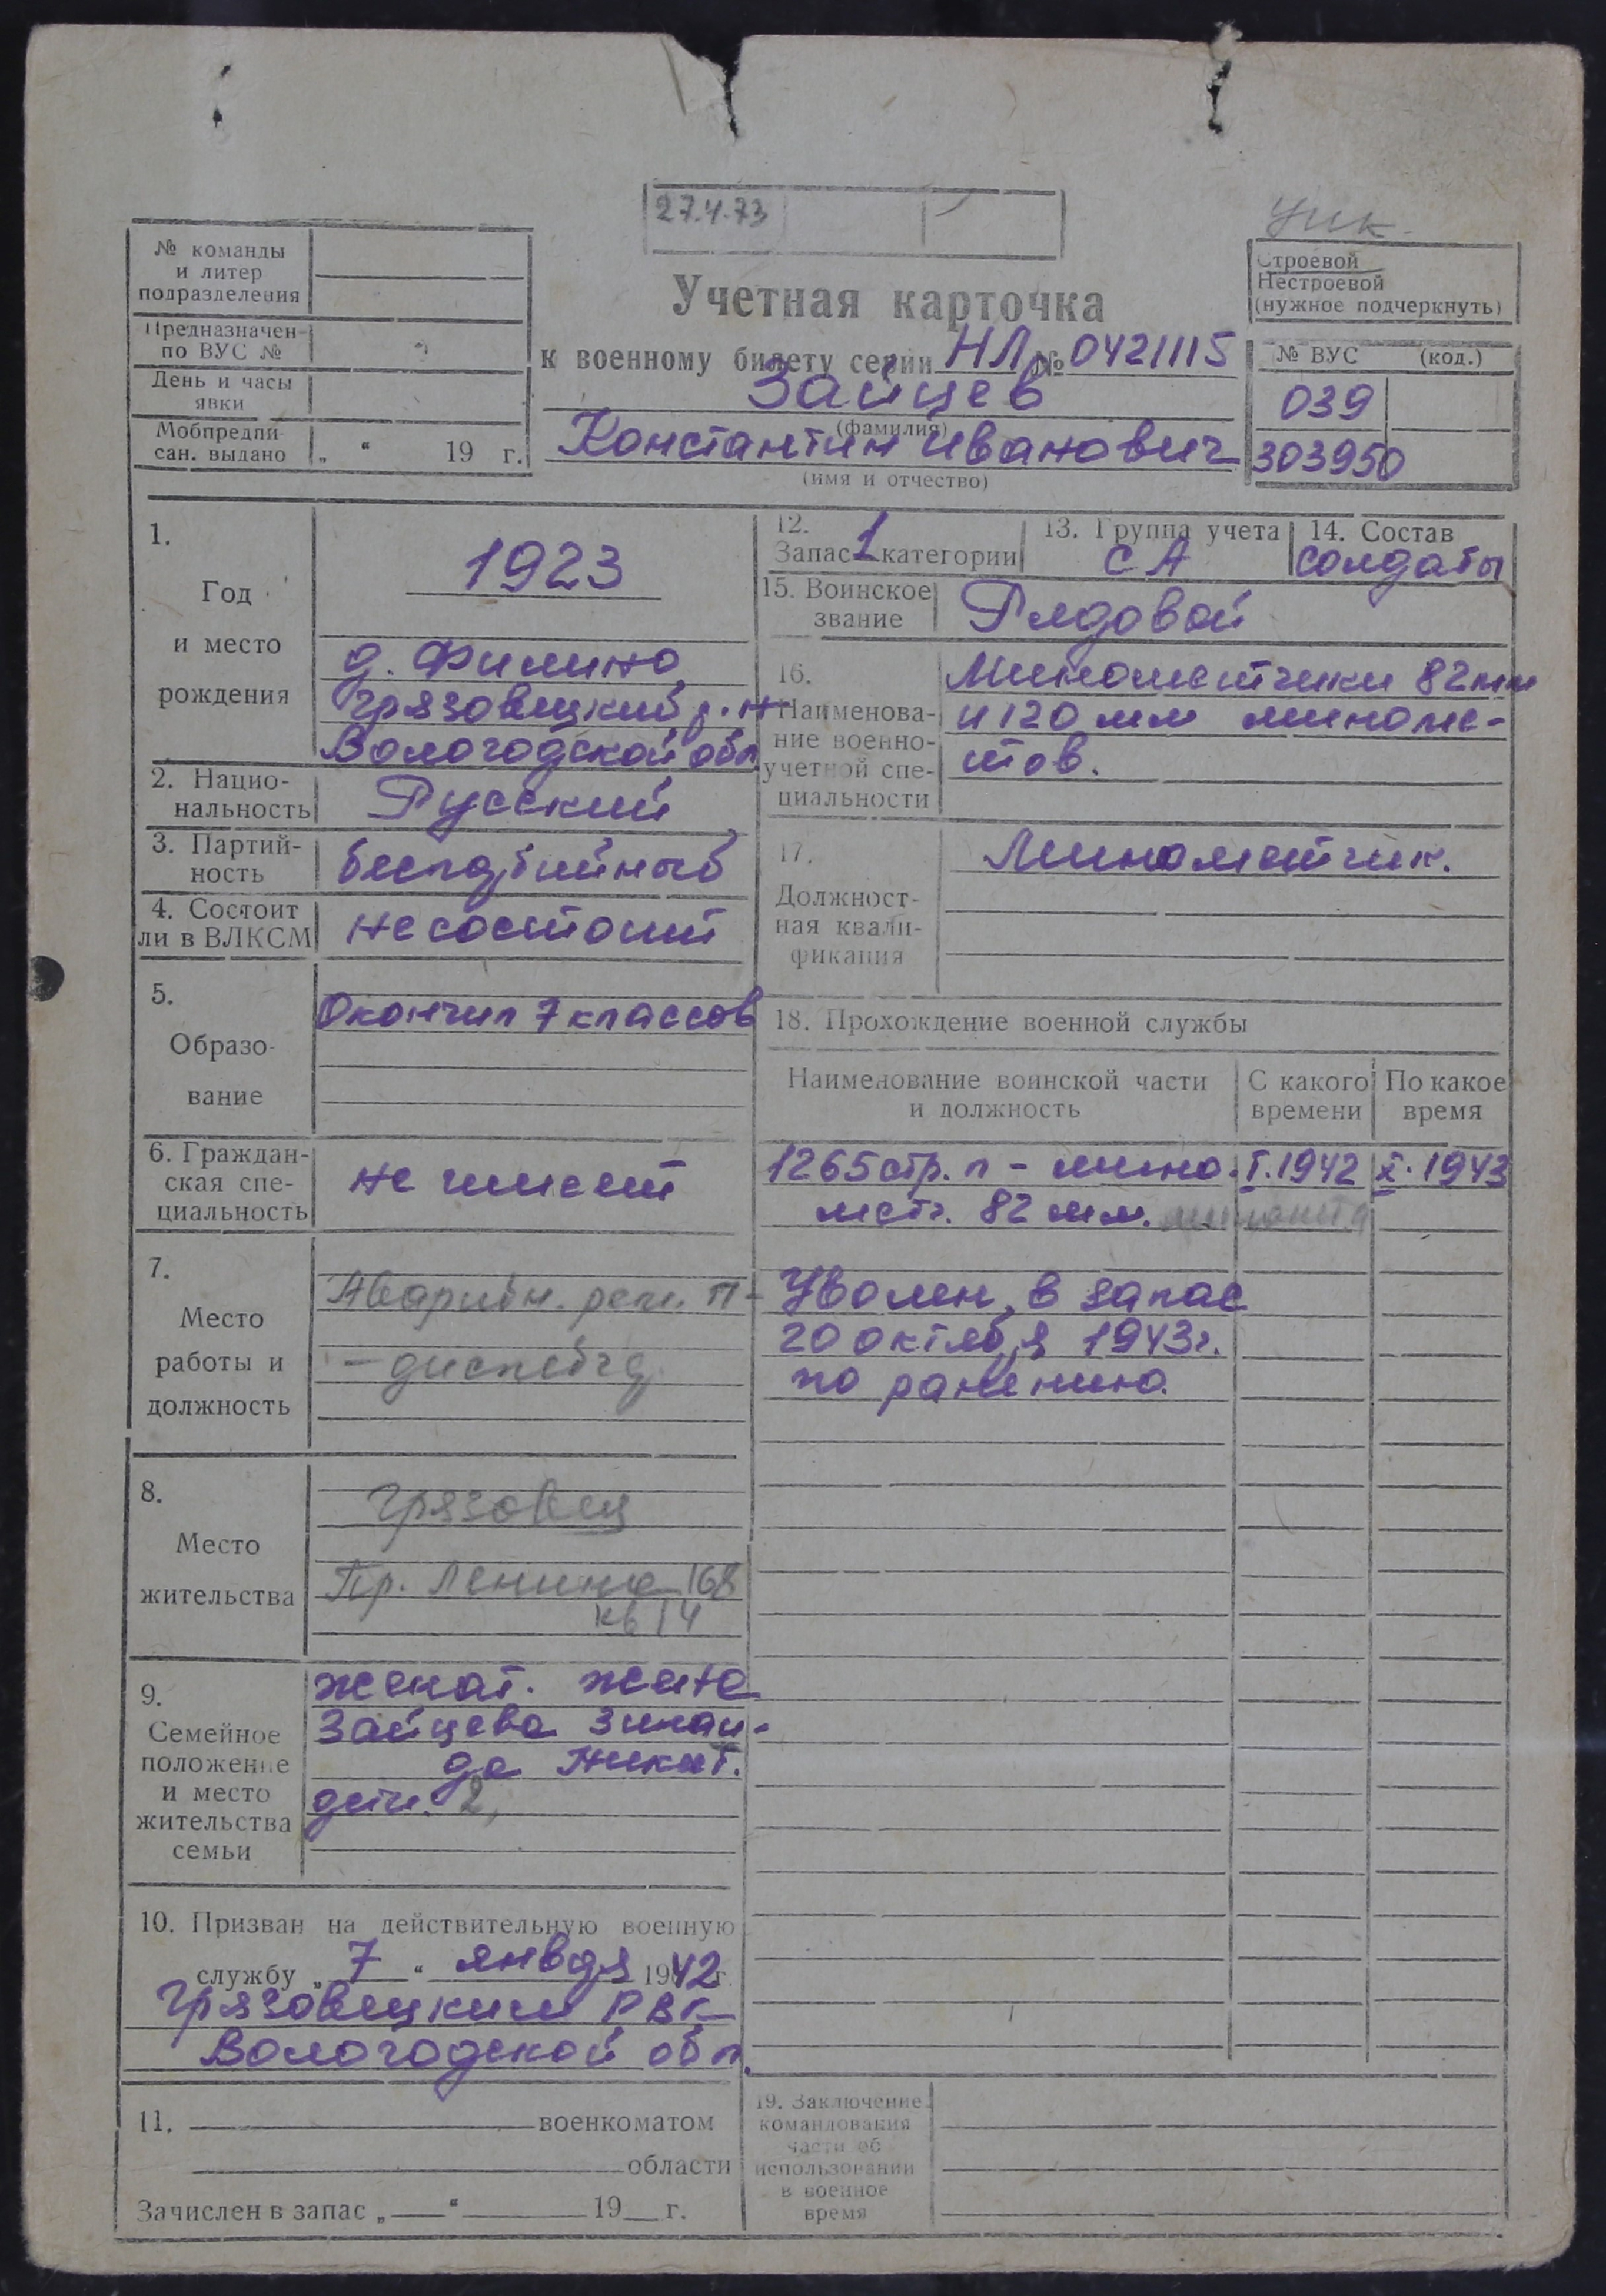 27.4.73
№ команды
и литер
подразделения
Предназначен
по ВУС №
День и часы
явки
Мобпредпи-
сан. выдано „ “ 19 г.
Учетная карточка
к военному билету серии НЛ № 0421115
Зайцев
(фамилия)
Константин Иванович
(имя и отчество)
Строевой
Нестроевой
(нужное подчеркнуть)
№ ВУС (код.)
039
303950
1.
Год
и место
рождения
1923
д. Филино
Грязовецкий р-н
Вологодской обл
2. Нацио-
нальность
Русский
3. Партий-
ность
беспартийный
4. Состоит
ли в ВЛКСМ
не состоит
5.
Образо-
вание
Окончил 7 классов
6. Граждан-
ская спе-
циальность
не имеет
7.
Место
работы и
должность
Аварийн. рем. п-
8.
Место
жительства
Грязовец
Пр. Ленина 168
кв 14
9.
Семейное
положение
и место
жительства
семьи
женат. жена
Зайцева Зинаи-
да Никит.
дети. 2,
10. Призван на действительную военную
службу „ 7 “ января 1942 г.
Грязовецким РВК
Вологодской обл.
11. военкоматом
области
Зачислен в запас „ “ 19 г.
12.
Запас 1 категории
13. Группа учета
СА
14. Состав
солдаты
15. Воинское
звание
Рядовой
16.
Наименова-
ние военно-
учетной спе-
циальности
Минометчики 82 мм
и 120 мм миноме-
тов.
17.
Должност-
ная квали-
фикация
Минометчик.
18. Прохождение военной службы
Наименование воинской части
и должность
С какого
времени
По какое
время
1265 стр. п - мино- I.1942 X.1943
метч. 82 мм.
Уволен в запас
20 октября 1943г.
по ранению.
19. Заключение
командования
части об
использовании
в военное
время